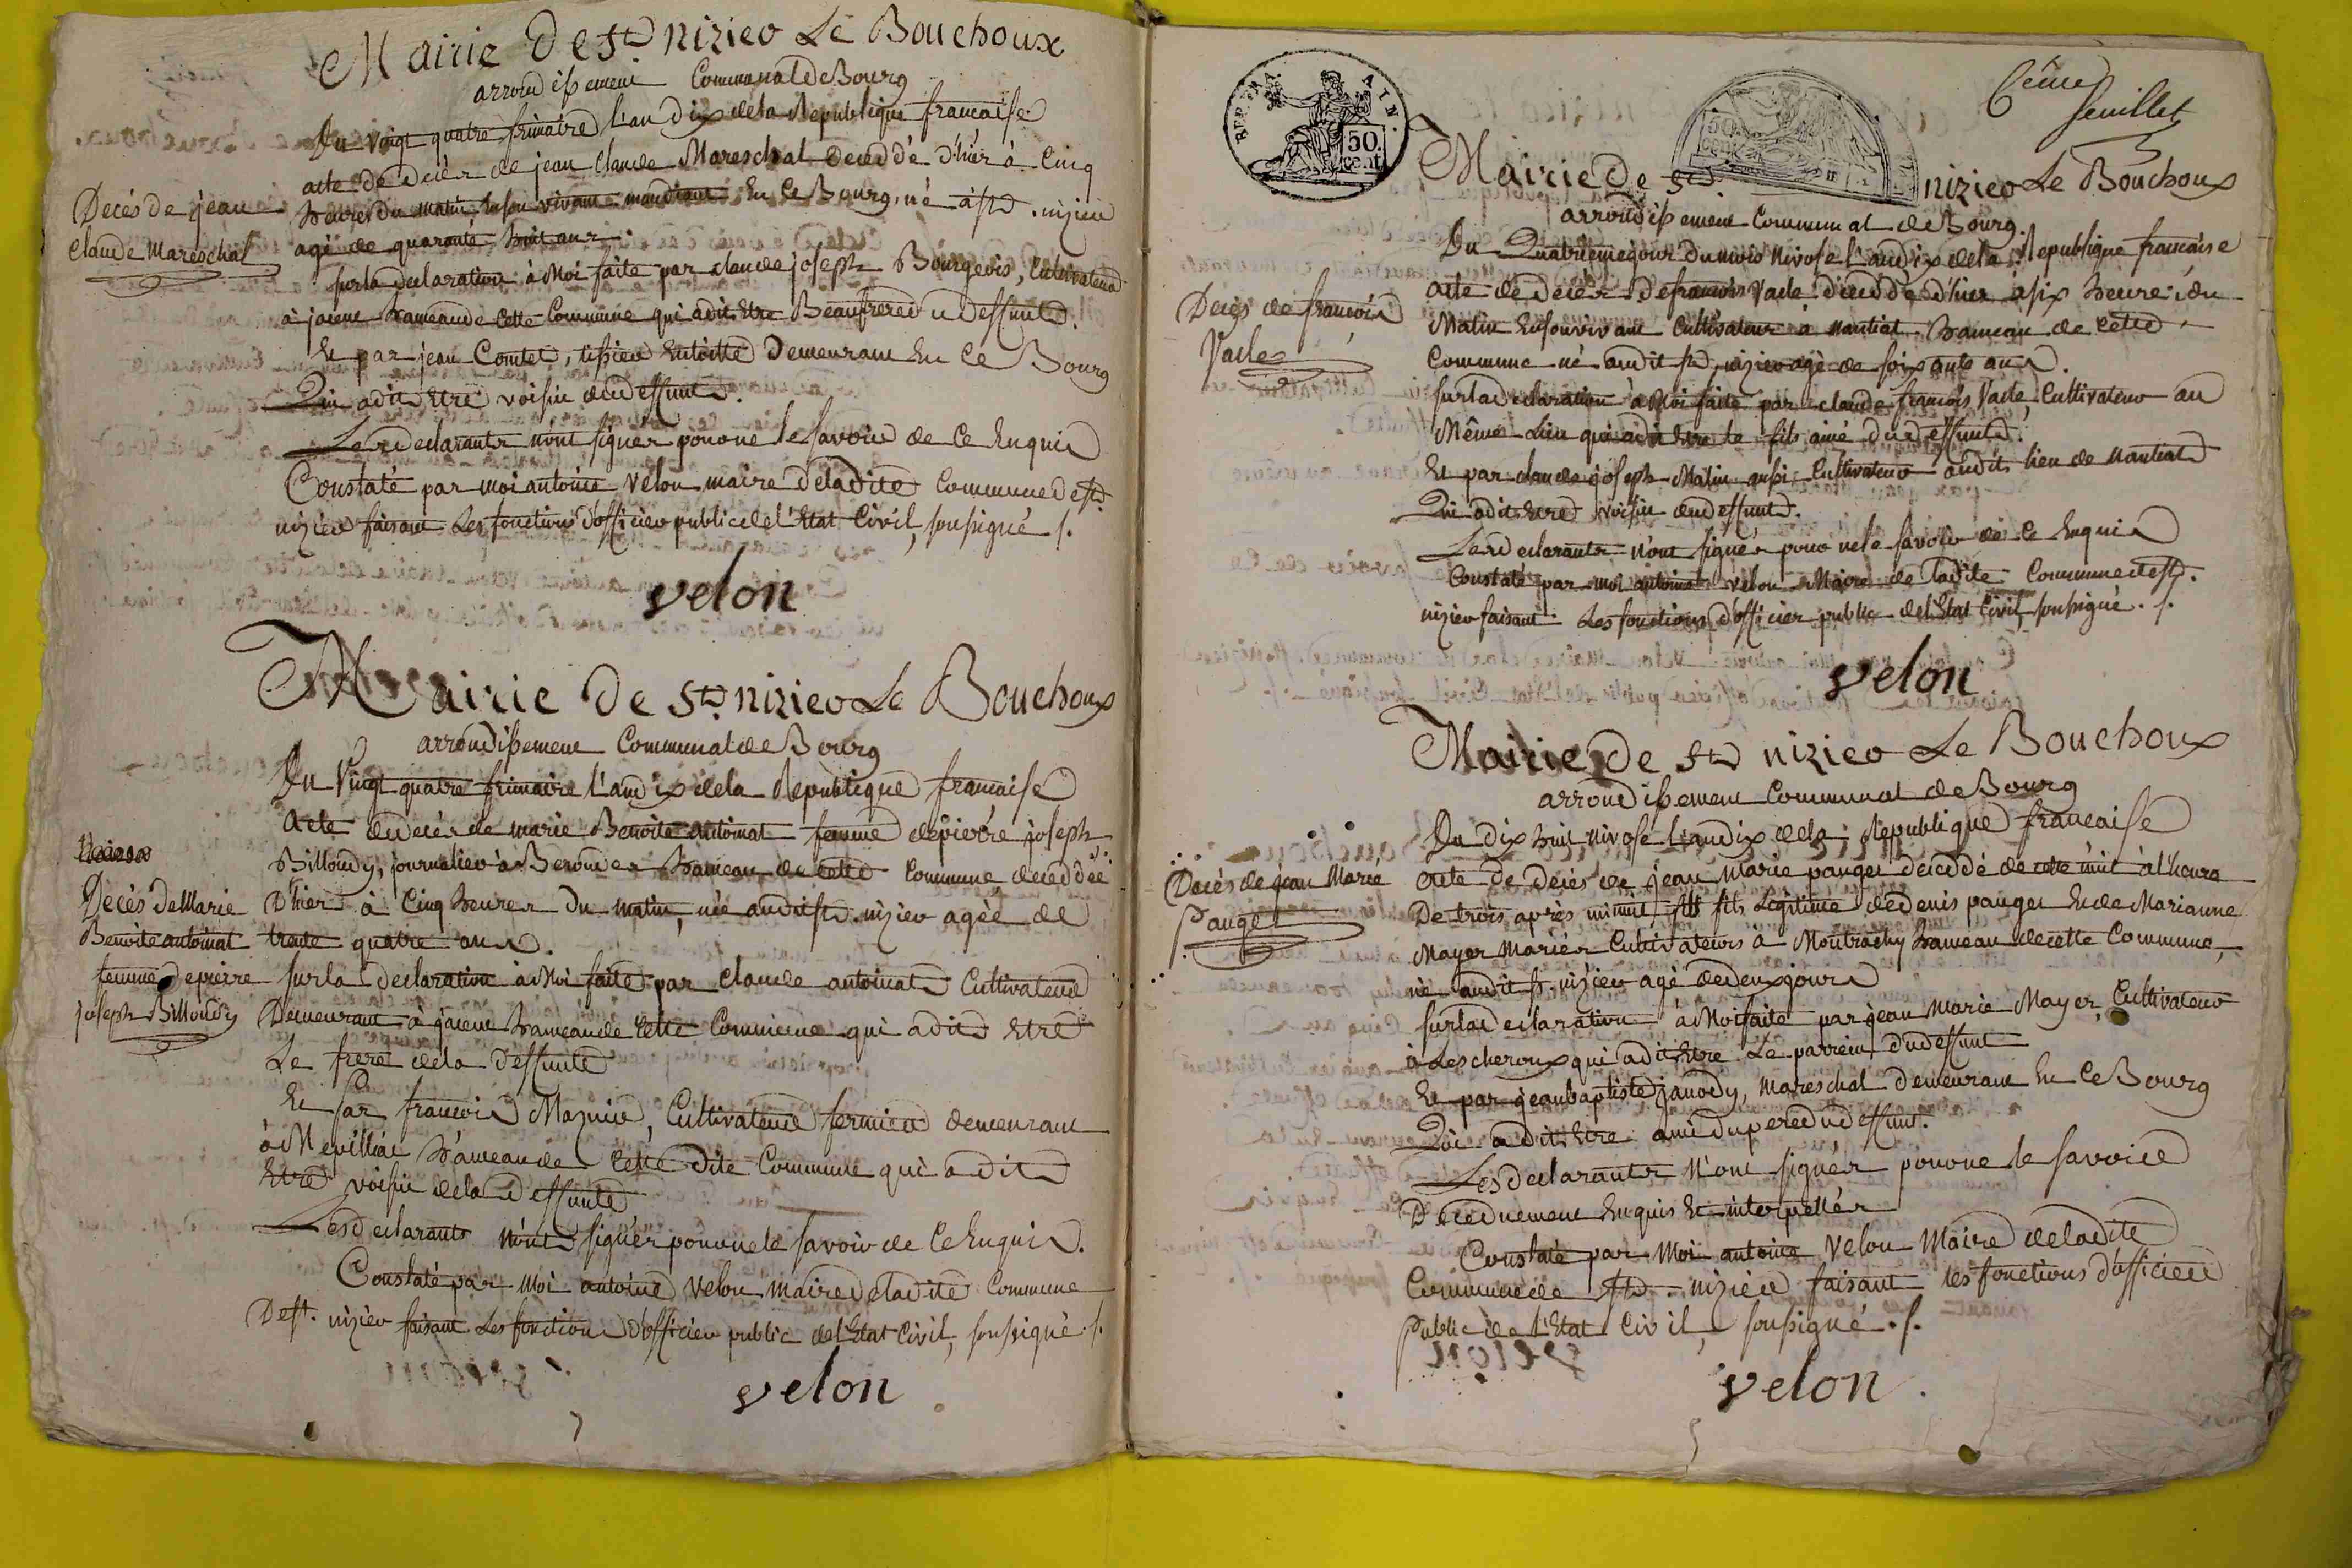 Mairie De St nizier Le Bouchoux
arrondissement Communal de Bourg
Du vingt quatre frimaire l'an dix de la Republique francaise
acte de decès de jean Claude Mareschal decedé d'hier à Cinq
heures du matin, En son vivant mandiant En Ce Bourg, né à St. nizier
agé de quarante huit ans.
Decès de jean
Claude Mareschal
sur la declaration à Moi faite par claude joseph Bourgeois, Cultivateur
à jaienc hameau de Cette Commune qui a dit Etre Beaufrere du deffunt.
Et par jean Comtet, tissier En toille Demeurant En Ce Bourg
Qui a dit Etre voisin du deffunt.
Les declarants n'ont signés pour ne le savoir de Ce Enquis
Constaté par moi antoine velon maire de ladite Commune de St.
nizier faisant Les fonctions d'officier public de l'Etat Civil, soussigné ./.
velon
Mairie De St. nizier Le Bouchoux
arrondissement Communal de Bourg
Du Vingt quatre frimaire l'an dix de la Republique francaise
Acte du decés de marie Benoite antoinat femme de pierre joseph
Billoudy, journalier à Beroudes hameau de cette Commune, decedée
D'hier à Cinq heures Du matin, née audit St. nizier agée de
trente quatre ans.
Decés De Marie
Benoite antoinat
femme de pierre
joseph Billoudy
sur la declaration à Moi faite par Claude antoinat Cultivateur
Demeurant à jaienc hameau de Cette Commune qui a dit Etre
Le frere de la deffunte
Et Par francois Maznir, Cultivateur fermier demeurant
à Mepilliat hameau de Cette dite Commune qui a dit
Etre voisin de la deffunte
Les declarants n'ont signés pour ne le savoir de Ce Enquis.
Constaté par Moi antoine velon maire de ladite Commune
De St. nizier faisant Les fonctions d'officier public de l'Etat Civil, soussigné ./.
velon
6eme
feuillet
REP. FRA. AIN.
50.
cent
Mairie De St nizier Le Bouchoux
arrondissement Communal de Bourg.
Du Quatrieme jour du mois Nivose l'an dix de la Republique francaise
Acte de decès de francois Vacle decedé d'hier à six heures du
Matin En son vivant Cultivateur à Nantiat hameau de Cette
Commune né audit St nizier agé de soixante ans.
Decès de francois
Vacle
sur la declaration à Moi faite par claude francois Vacle Cultivateur au
Même Lieu qui a dit Etre le fils ainé du deffunt.
Et par claude joseph Matin aussi Cultivateur audit lieu de Nantiat
Qui a dit Etre voisin du deffunt.
Les declarants N'ont signés pour ne le savoir de Ce Enquis
Constaté par moi antoine velon Maire de ladite Commune de St.
nizier faisant Les fonctions d'officier public de l'Etat Civil, soussigné ./.
velon
Mairie De St nizier Le Bouchoux
arrondissement Communal de Bourg
Du dix huit Nivose l'an dix de la Republique francaise
Acte de decés de jean Marie panget decedé de cette nuit à l'heure
De trois après minuit, fils Legitime de denis panget Et de Marianne
Mayer Mariés Cultivateurs à Montrachy hameau de cette Commune,
né audit St. nizier agé de deux jours
Decès de jean Marie
Panget
sur la declaration à Moi faite par jean Marie Mayer, Cultivateur
à Lescheroux qui a dit Etre Le parrein du deffunt
Et par jean baptiste janody, Mareschal Demeurant En Ce Bourg
Qui a dit Etre ami du pere du deffunt.
Les declarants N'ont signés pour ne le savoir
De ce duement Enquis Et interpellés
Constaté par Moi antoine Velon Maire de ladite
Commune de St. nizier faisant les fonctions d'officier
Public de l'Etat Civil, soussigné ./.
velon